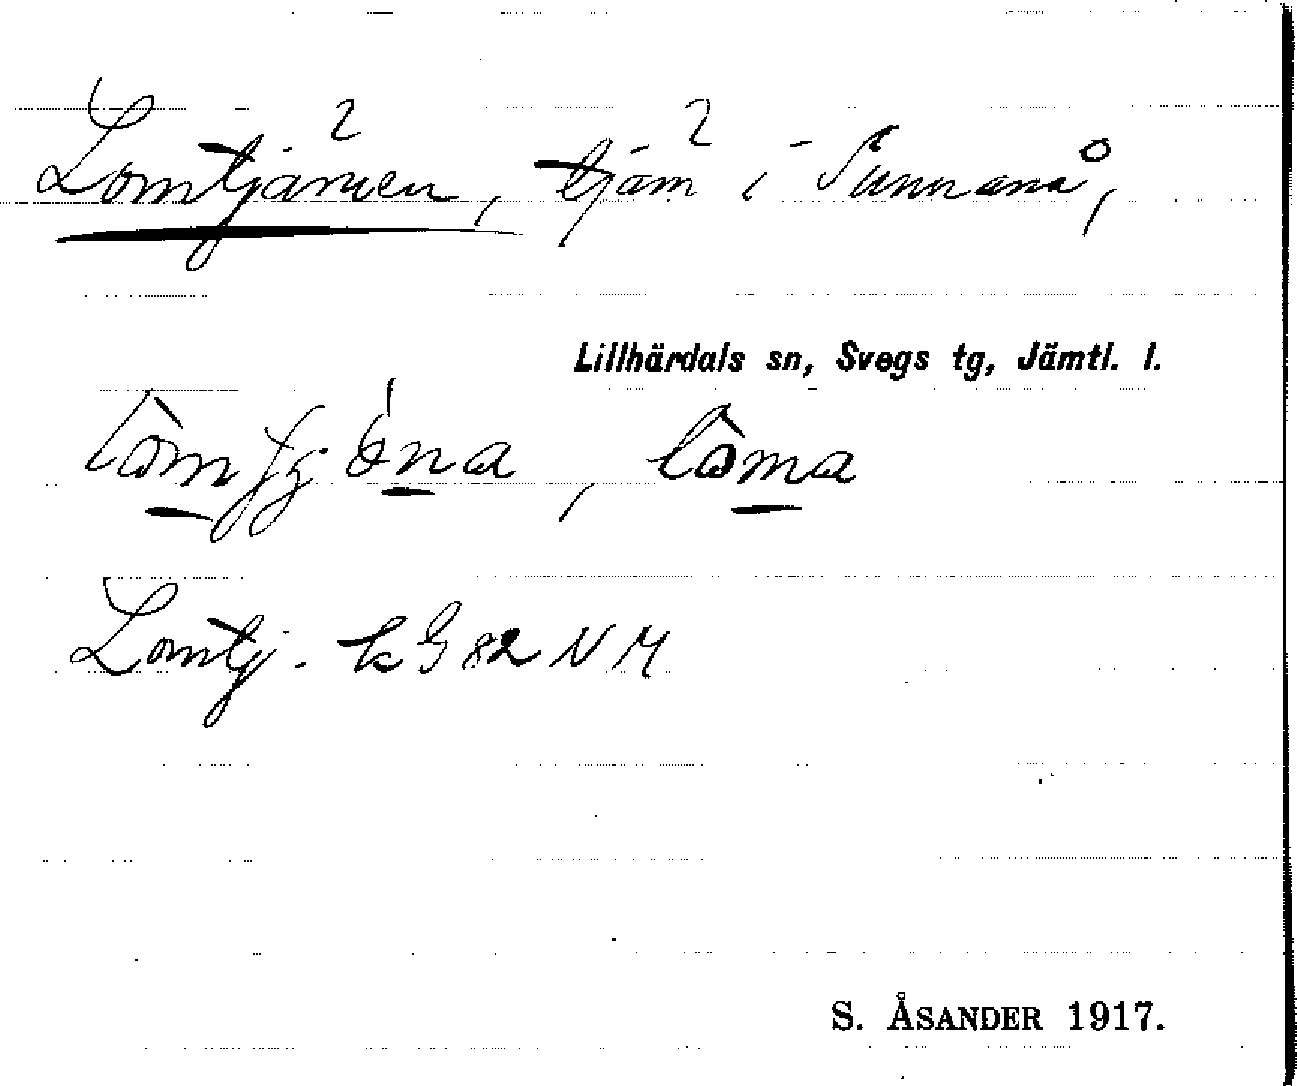 Lomtjärnen, tjärn i Sunnanå,
2 2
Lillhärdals sn, Svegs tg, Jämtl. l.
Lomtj. k G 82 N M
S. ÅSANDER 1917.